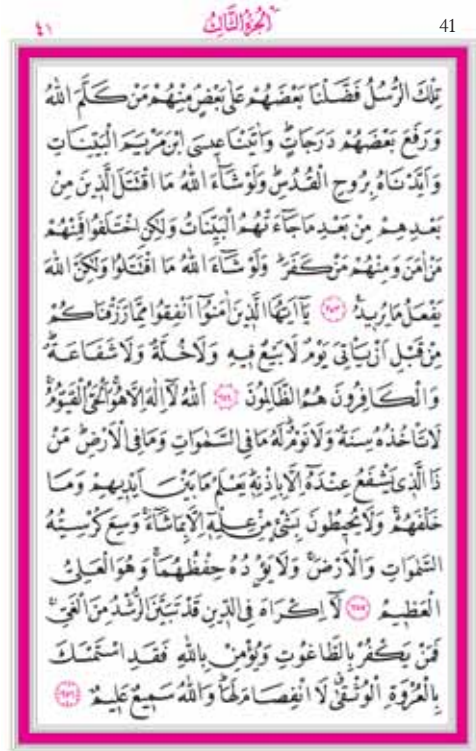 ٤١ الجزء الثالث 41
تِلْكَ الرُّسُلُ فَضَّلْنَا بَعْضَهُمْ عَلٰى بَعْضٍ مِنْهُمْ مَنْ كَلَّمَ اللّٰهُ
وَرَفَعَ بَعْضَهُمْ دَرَجَاتٍ وَاٰتَيْنَا عِيسَى ابْنَ مَرْيَمَ الْبَيِّنَاتِ
وَاَيَّدْنَاهُ بِرُوحِ الْقُدُسِ وَلَوْ شَآءَ اللّٰهُ مَا اقْتَتَلَ الَّذِينَ مِنْ
بَعْدِهِمْ مِنْ بَعْدِ مَا جَآءَتْهُمُ الْبَيِّنَاتُ وَلٰكِنِ اخْتَلَفُوا فَمِنْهُمْ
مَنْ اٰمَنَ وَمِنْهُمْ مَنْ كَفَرَ وَلَوْ شَآءَ اللّٰهُ مَا اقْتَتَلُوا وَلٰكِنَّ اللّٰهَ
يَفْعَلُ مَا يُرِيدُ ﴿٢٥٣﴾ يَآ اَيُّهَا الَّذِينَ اٰمَنُوٓا اَنْفِقُوا مِمَّا رَزَقْنَاكُمْ
مِنْ قَبْلِ اَنْ يَأْتِيَ يَوْمٌ لَا بَيْعٌ فِيهِ وَلَا خُلَّةٌ وَلَا شَفَاعَةٌ
وَالْكَافِرُونَ هُمُ الظَّالِمُونَ ﴿٢٥٤﴾ اَللّٰهُ لَآ اِلٰهَ اِلَّا هُوَ اَلْحَيُّ الْقَيُّومُ
لَا تَأْخُذُهُ سِنَةٌ وَلَا نَوْمٌ لَهُ مَا فِي السَّمٰوَاتِ وَمَا فِي الْاَرْضِ مَنْ
ذَا الَّذِي يَشْفَعُ عِنْدَهُٓ اِلَّا بِاِذْنِهِ يَعْلَمُ مَا بَيْنَ اَيْدِيهِمْ وَمَا
خَلْفَهُمْ وَلَا يُحِيطُونَ بِشَيْءٍ مِنْ عِلْمِهِٓ اِلَّا بِمَا شَآءَ وَسِعَ كُرْسِيُّهُ
السَّمٰوَاتِ وَالْاَرْضَ وَلَا يَؤُدُهُ حِفْظُهُمَا وَهُوَ الْعَلِيُّ
الْعَظِيمُ ﴿٢٥٥﴾ لَآ اِكْرَاهَ فِي الدِّينِ قَدْ تَبَيَّنَ الرُّشْدُ مِنَ الْغَيِّ
فَمَنْ يَكْفُرْ بِالطَّاغُوتِ وَيُؤْمِنْ بِاللّٰهِ فَقَدِ اسْتَمْسَكَ
بِالْعُرْوَةِ الْوُثْقٰى لَا انْفِصَامَ لَهَا وَاللّٰهُ سَمِيعٌ عَلِيمٌ ﴿٢٥٦﴾